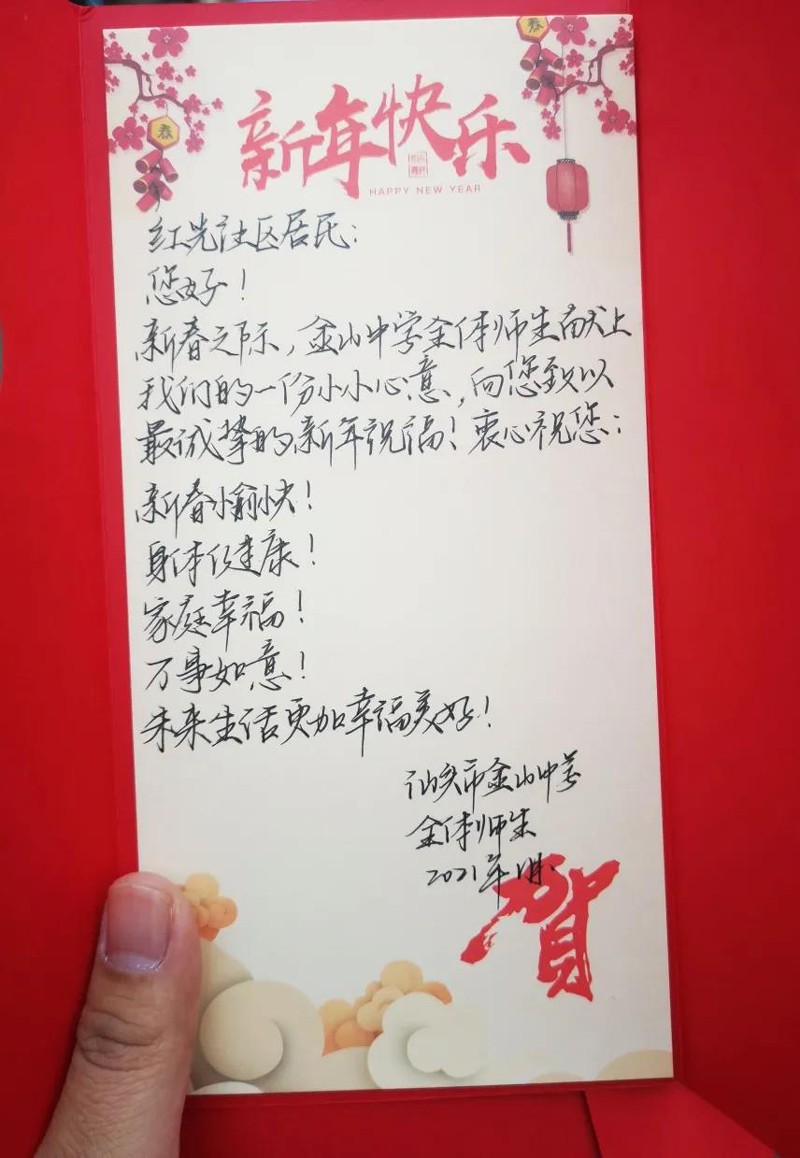 春
春
新年快乐
HAPPY NEW YEAR
红光社区居民:
您好!
新春之际,金山中学全体师生献上
我们的一份小小心意,向您致以
最诚挚的新年祝福!衷心祝您:
新春愉快!
身体健康!
家庭幸福!
万事如意!
未来生活更加幸福美好!
汕头市金山中学
全体师生
2021年1月.
贺